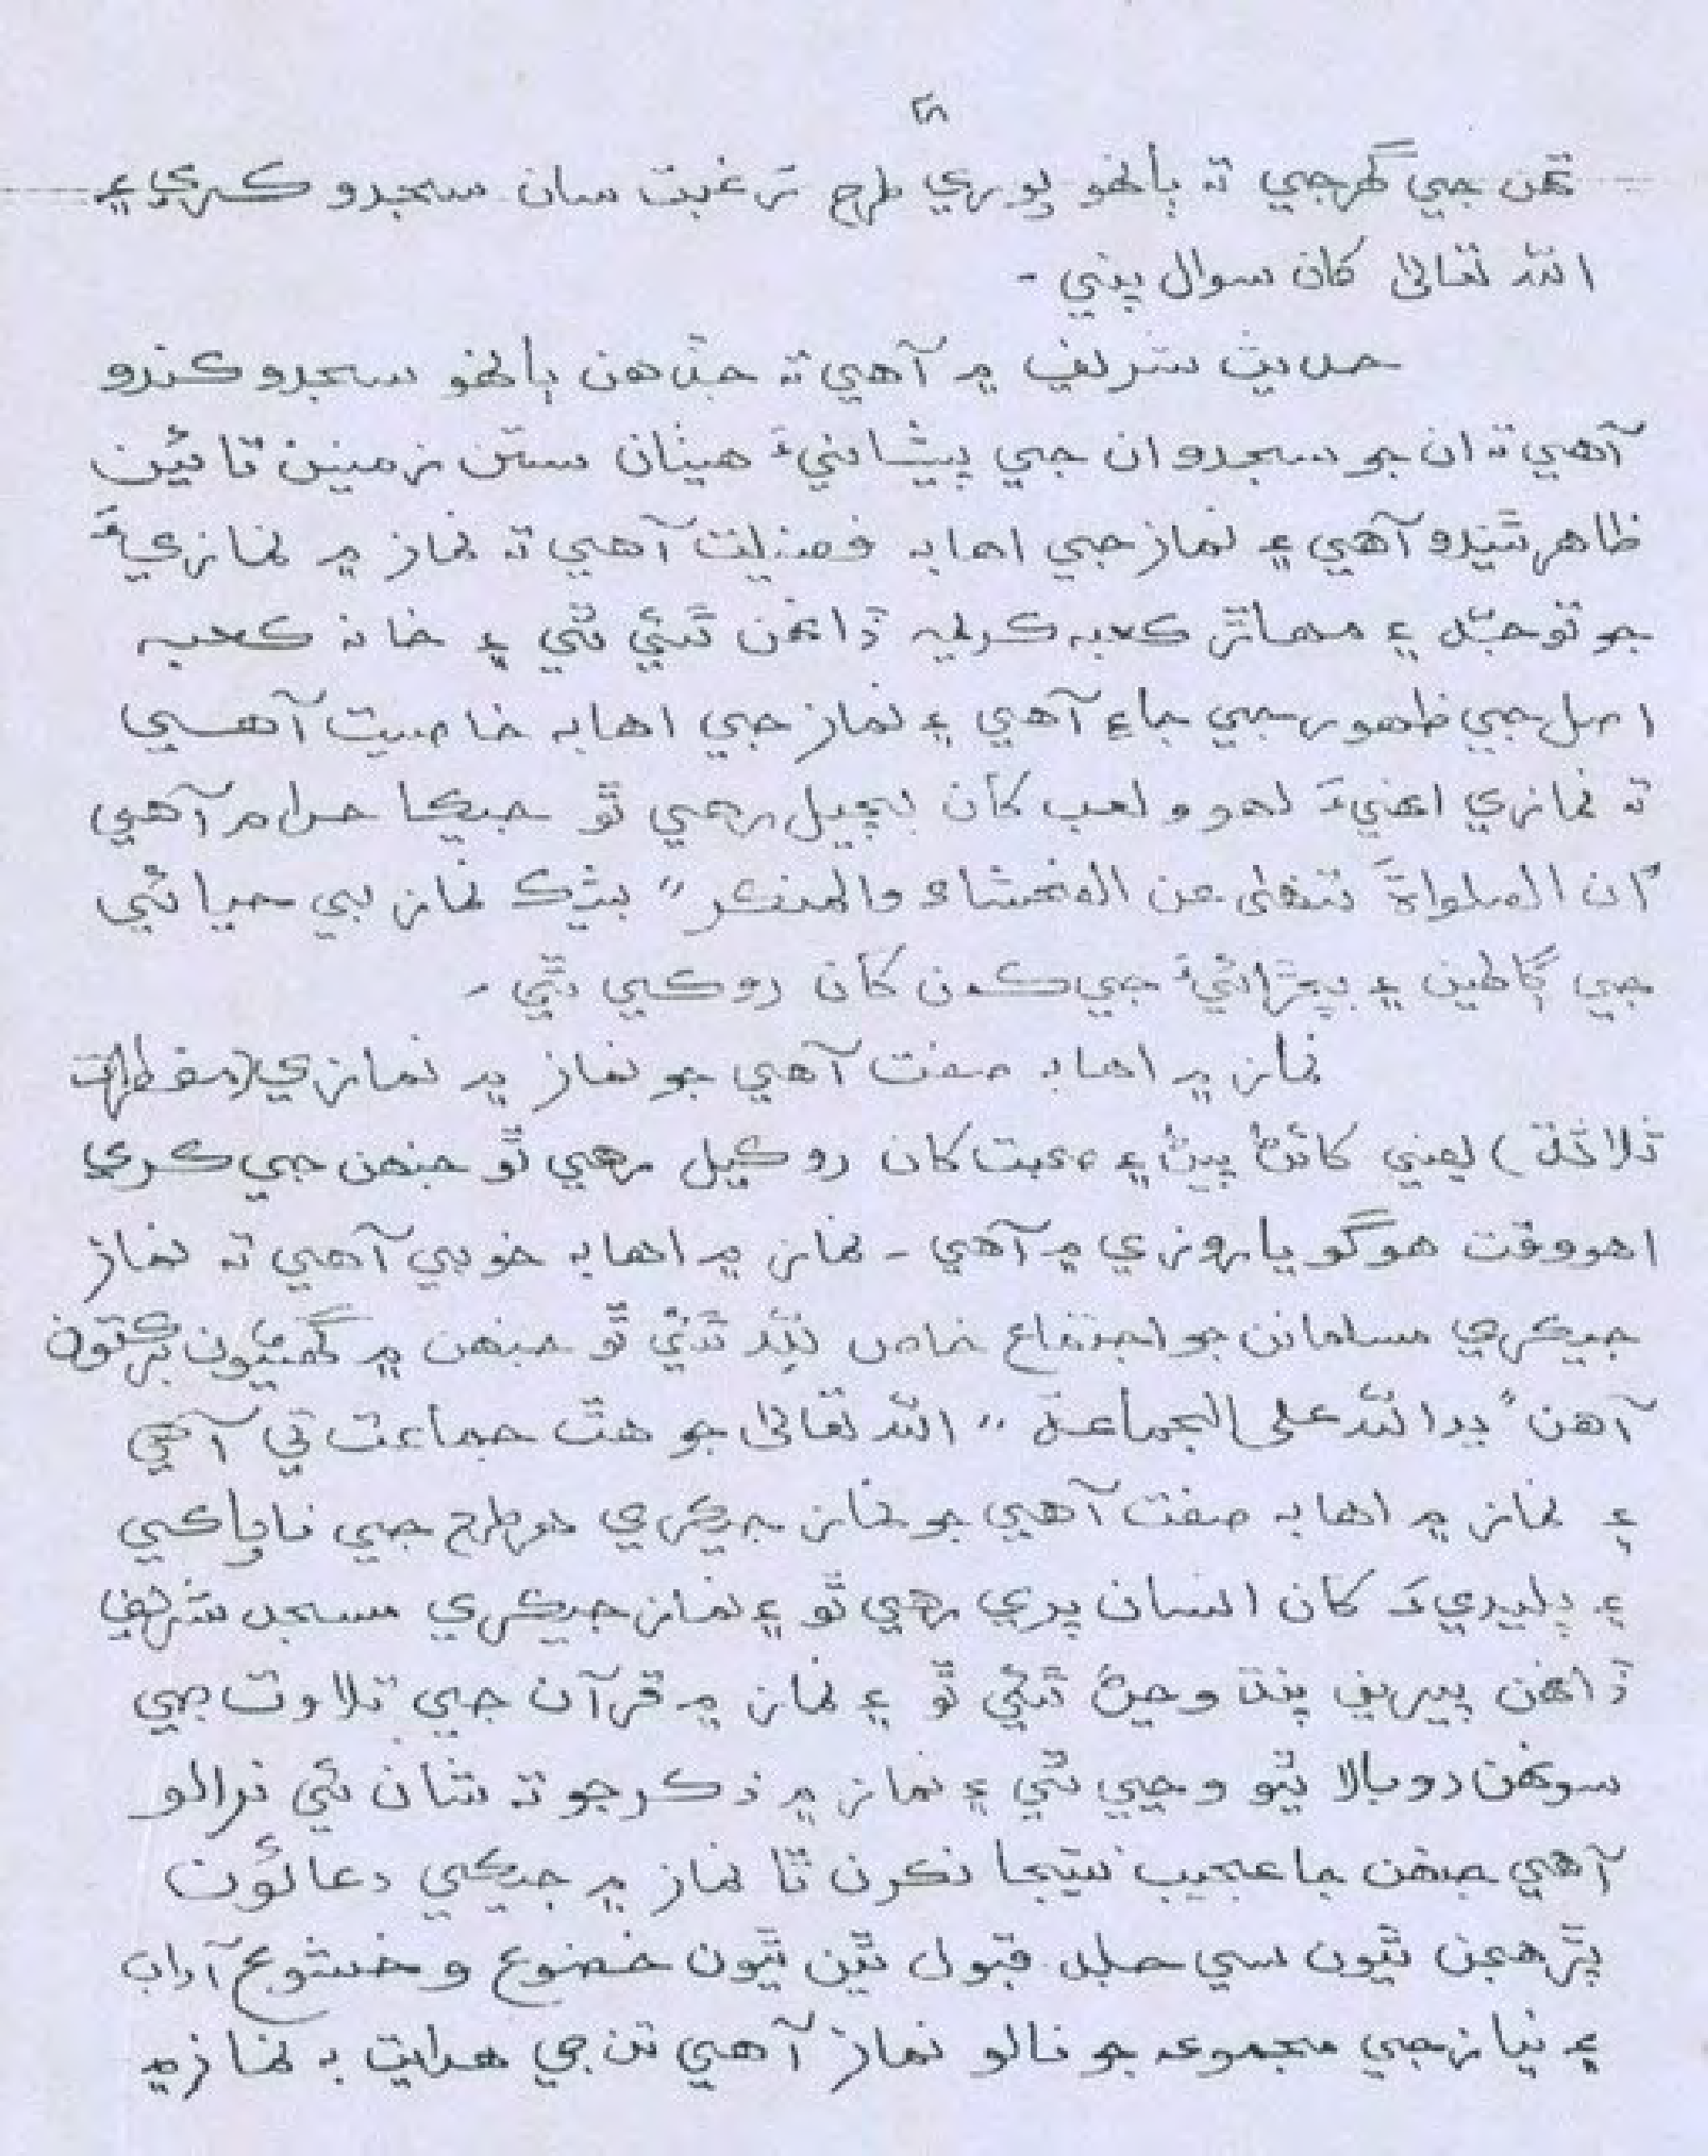 ۴۸
تهن جي گهرجي ته ٻانهو پوري طرح ترغبت سان سجدو ڪري ۽
الله تعاليٰ کان سوال پني -
حديث شريف ۾ آهي ته جڏهن ٻانهو سجدو ڪندو
آهي ته ان جو سجدو ان جي پيشانيءَ هيٺان ستن زمينن تائين
ظاهر ٿيندو آهي ۽ نماز جي اها به فضيلت آهي ته نماز ۾ نمازيءَ
جو توجہّ ۽ مهاڻو ڪعبه ڪريمہ ڏانهن ٿئي ٿي ۽ خانه ڪعبہ
اصل جي ظهور جي جاءِ آهي ۽ نماز جي اها به خاصيت آهي
ته نمازي اهڙيءَ لهو و لعب کان بچيل رهي ٿو جيڪا حرام آهي
"ان الصلواةَ تنهىٰ عن الفحشاء والمنكر" بيشڪ نماز بي حيائي
جي ڳالهين ۽ بڇڙائيءَ جي ڪمن کان روڪي ٿي -
نماز ۾ اها به صفت آهي جو نماز ۾ نمازي (مفطرات
ثلاثة) يعني کائڻ پيئڻ ۽ صحبت کان روڪيل رهي ٿو جنهن جي ڪري
اهو وقت هو گويا روزي ۾ آهي - نماز ۾ اها به خوبي آهي ته نماز
جيڪري مسلمانن جو اجتماع خاص نيڪ ٿئي ٿو جنهن ۾ گهڻيون برڪتون
آهن "يدالله على الجماعة" الله تعاليٰ جو هٿ جماعت تي آهي
۽ نماز ۾ اها به صفت آهي جو نماز جيڪري هر طرح جي ناپاڪي
۽ پليديءَ کان انسان پري رهي ٿو ۽ نماز جيڪري مسجد شريف
ڏانهن پيرين پنڌ وڃڻ ٿئي ٿو ۽ نماز ۾ قرآن جي تلاوت جي
سونهن دوبالا ٿيو وڃي ٿي ۽ نماز ۾ ذڪر جو ته شان ئي نرالو
آهي جنهن جا عجيب نتيجا نڪرن ٿا نماز ۾ جيڪي دعائون
پڙهجن ٿيون سي جلد قبول ٿين ٿيون خضوع و خشوع آداب
۽ نياز جي مجموعه جو نالو نماز آهي تن جي هدايت به نماز ۾